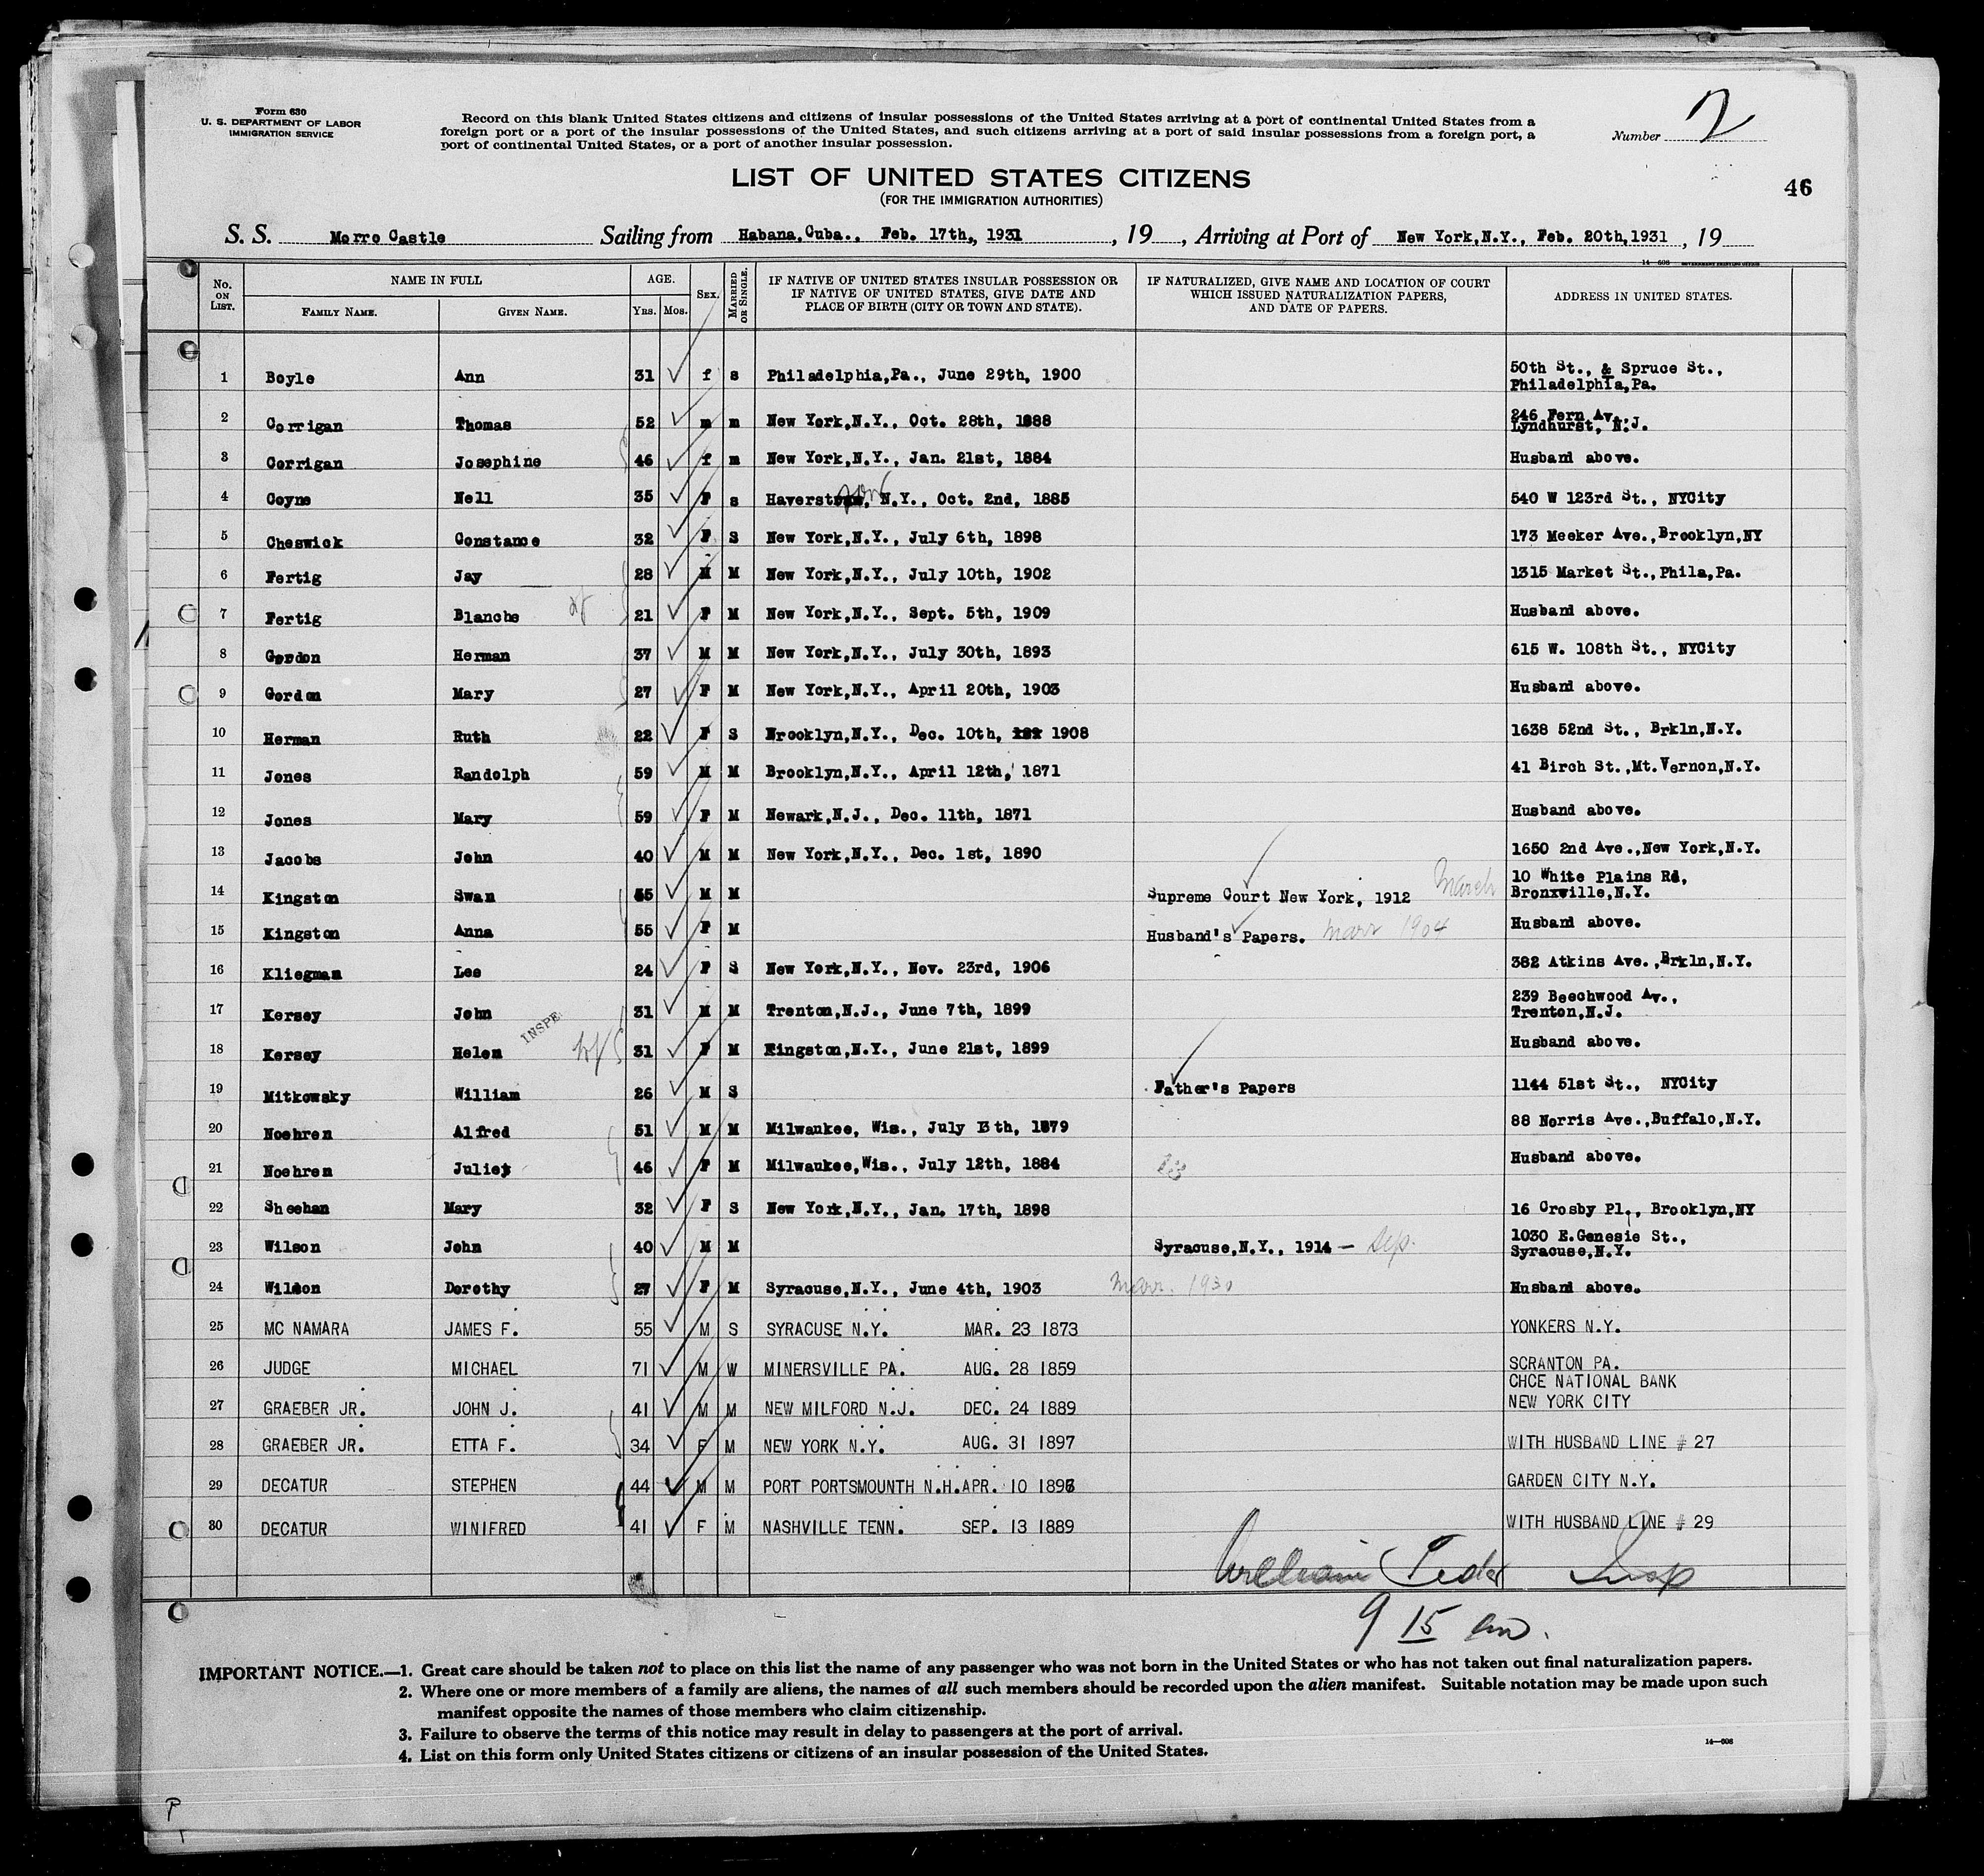 Form 630
U. S. DEPARTMENT OF LABOR
IMMIGRATION SERVICE
Record on this blank United States citizens and citizens of insular possessions of the United States arriving at a port of continental United States from a
foreign port or a port of the insular possessions of the United States, and such citizens arriving at a port of said insular possessions from a foreign port, a
port of continental United States, or a port of another insular possession.
Number 2
LIST OF UNITED STATES CITIZENS
(FOR THE IMMIGRATION AUTHORITIES)
46
S. S. Morro Castle Sailing from Habana,Cuba., Feb. 17th, 1931, 19 , Arriving at Port of New York,N.Y., Feb. 20th,1931, 19
14-608 GOVERNMENT PRINTING OFFICE
No. ON LIST. NAME IN FULL AGE. SEX. MARRIED OR SINGLE. IF NATIVE OF UNITED STATES INSULAR POSSESSION OR IF NATIVE OF UNITED STATES, GIVE DATE AND PLACE OF BIRTH (CITY OR TOWN AND STATE). IF NATURALIZED, GIVE NAME AND LOCATION OF COURT WHICH ISSUED NATURALIZATION PAPERS, AND DATE OF PAPERS. ADDRESS IN UNITED STATES.
FAMILY NAME. GIVEN NAME. YRS. MOS.
1 Boyle Ann 31 f s Philadelphia,Pa., June 29th, 1900 50th St., & Spruce St., Philadelphia,Pa.
2 Corrigan Thomas 52 m m New York,N.Y., Oct. 28th, 1888 246 Fern Av. Lyndhurst, N.J.
3 Corrigan Josephine 46 f m New York,N.Y., Jan. 21st, 1884 Husband above.
4 Coyne Nell 35 F s Haverst N.Y., Oct. 2nd, 1885 540 W 123rd St., NYCity
5 Cheswick Constance 32 F S New York,N.Y., July 6th, 1898 173 Meeker Ave.,Brooklyn,NY
6 Fertig Jay 28 M M New York,N.Y., July 10th, 1902 1315 Market St.,Phila,Pa.
7 Fertig Blanche 21 F M New York,N.Y., Sept. 5th, 1909 Husband above.
8 Gordon Herman 37 M M New York,N.Y., July 30th, 1893 615 W. 108th St., NYCity
9 Gordon Mary 27 F M New York,N.Y., April 20th, 1903 Husband above.
10 Herman Ruth 22 F S Brooklyn,N.Y., Dec. 10th, 1908 1638 52nd St., Brkln,N.Y.
11 Jones Randolph 59 M M Brooklyn,N.Y., April 12th, 1871 41 Birch St.,Mt.Vernon,N.Y.
12 Jones Mary 59 F M Newark,N.J., Dec. 11th, 1871 Husband above.
13 Jacobs John 40 M M New York,N.Y., Dec. 1st, 1890 1650 2nd Ave.,New York,N.Y.
14 Kingston Swan 55 M M Supreme Court New York, 1912 March 10 White Plains Rd, Bronxville,N.Y.
15 Kingston Anna 55 F M Husband's Papers. Marr 1904 Husband above.
16 Kliegman Lee 24 F S New York,N.Y., Nov. 23rd, 1906 382 Atkins Ave.,Brkln,N.Y.
17 Kersey John 31 M M Trenton,N.J., June 7th, 1899 239 Beechwood Av., Trenton,N.J.
INSPE
18 Kersey Helen 31 F M Kingston,N.Y., June 21st, 1899 Husband above.
19 Mitkowsky William 26 M S Father's Papers 1144 51st St., NYCity
20 Noehren Alfred 51 M M Milwaukee, Wis., July 13th, 1879 88 Norris Ave.,Buffalo,N.Y.
21 Noehren Juliet 46 F M Milwaukee,Wis., July 12th, 1884 Husband above.
22 Sheehan Mary 32 F S New York,N.Y., Jan. 17th, 1898 16 Crosby Pl., Brooklyn,NY
23 Wilson John 40 M M Syracuse,N.Y., 1914 — Sep. 1030 E.Genesie St., Syracuse,N.Y.
24 Wilson Dorothy 27 F M Syracuse,N.Y., June 4th, 1903 Marr. 1930 Husband above.
25 MC NAMARA JAMES F. 55 M S SYRACUSE N.Y. MAR. 23 1873 YONKERS N.Y.
26 JUDGE MICHAEL 71 M W MINERSVILLE PA. AUG. 28 1859 SCRANTON PA.
27 GRAEBER JR. JOHN J. 41 M M NEW MILFORD N.J. DEC. 24 1889 CHCE NATIONAL BANK NEW YORK CITY
28 GRAEBER JR. ETTA F. 34 F M NEW YORK N.Y. AUG. 31 1897 WITH HUSBAND LINE # 27
29 DECATUR STEPHEN 44 M M PORT PORTSMOUTH N.H. APR. 10 1896 GARDEN CITY N.Y.
30 DECATUR WINIFRED 41 F M NASHVILLE TENN. SEP. 13 1889 WITH HUSBAND LINE # 29
William Insp
9 15 am.
IMPORTANT NOTICE.—1. Great care should be taken not to place on this list the name of any passenger who was not born in the United States or who has not taken out final naturalization papers.
2. Where one or more members of a family are aliens, the names of all such members should be recorded upon the alien manifest. Suitable notation may be made upon such
manifest opposite the names of those members who claim citizenship.
3. Failure to observe the terms of this notice may result in delay to passengers at the port of arrival.
4. List on this form only United States citizens or citizens of an insular possession of the United States.
14-608
P